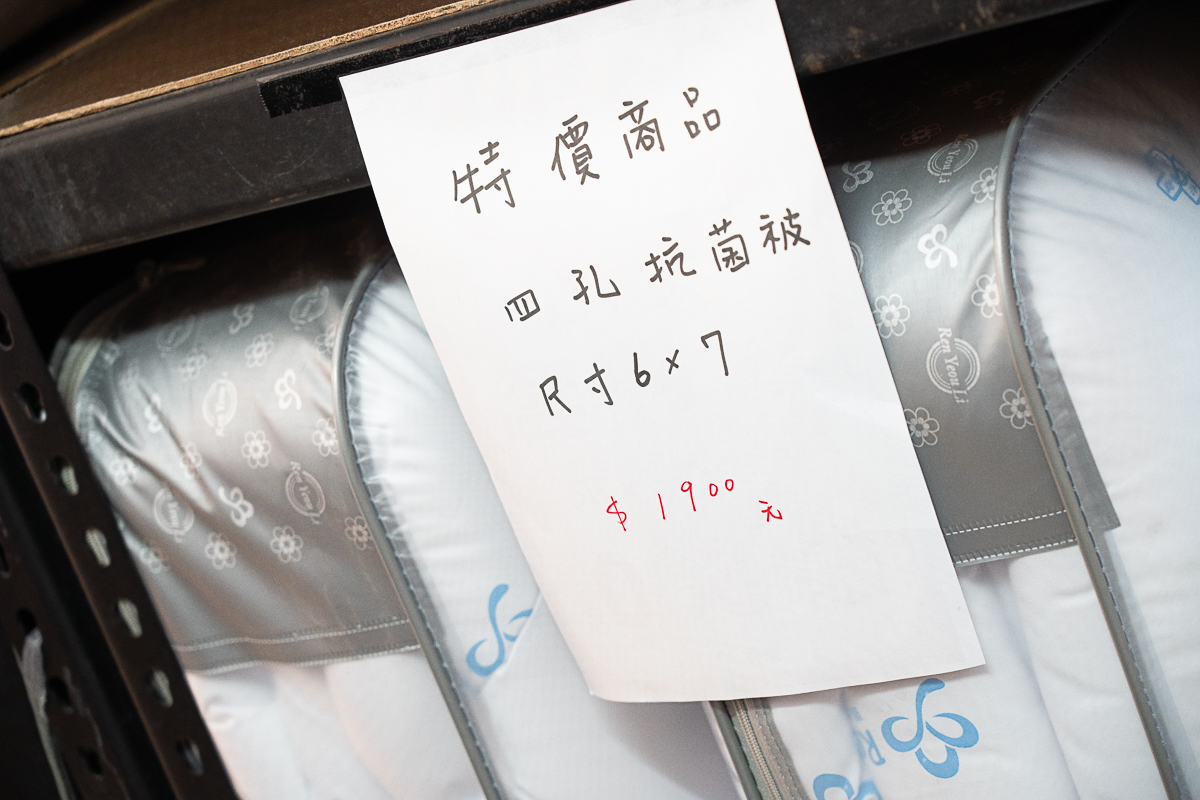 特價商品
四孔抗菌被
尺寸6×7
$1900元
Ren Yeou Li
Ren Yeou Li
Ren Yeou Li
Ren Yeou Li
Ren Yeou Li